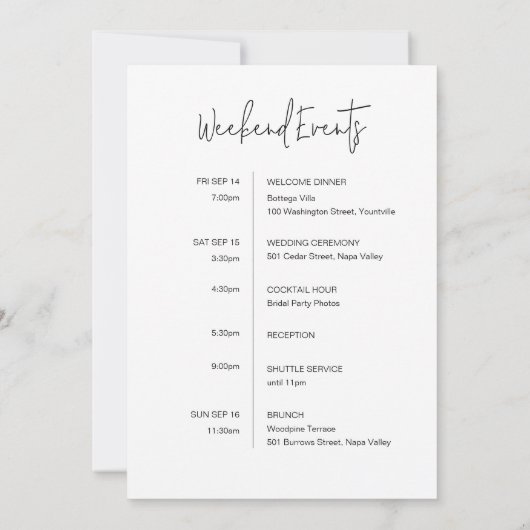 Weekend Events
FRI SEP 14
WELCOME DINNER
7:00pm
Bottega Villa
100 Washington Street, Yountville
SAT SEP 15
WEDDING CEREMONY
3:30pm
501 Cedar Street, Napa Valley
4:30pm
COCKTAIL HOUR
Bridal Party Photos
5:30pm
RECEPTION
9:00pm
SHUTTLE SERVICE
until 11pm
SUN SEP 16
BRUNCH
11:30am
Woodpine Terrace
501 Burrows Street, Napa Valley